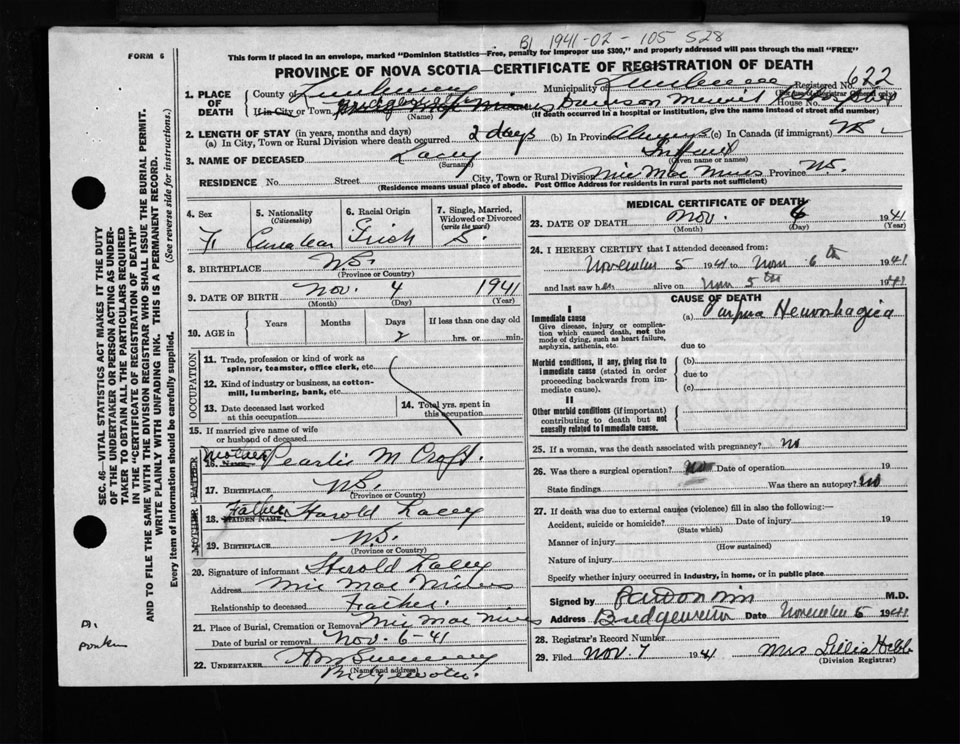 B1 1941-02-105 528
FORM 6
This form if placed in an envelope, marked "Dominion Statistics—Free, penalty for improper use $300," and properly addressed will pass through the mail "FREE"
PROVINCE OF NOVA SCOTIA—CERTIFICATE OF REGISTRATION OF DEATH
Registered No. 622
1. PLACE OF DEATH County of Lunenburg Municipality of Lunenburg
If in City, or Town Bridgewater Dawson Memorial Hospital House No.
(Name) (If death occurred in a hospital or institution, give the name instead of street and number)
2. LENGTH OF STAY (in years, months and days)
(a) In City, Town or Rural Division where death occurred 2 days (b) In Province Always (c) In Canada (if immigrant)
3. NAME OF DECEASED Lacey Infant
(Surname) (Given name or names)
RESIDENCE No. Street City, Town or Rural Division Mic Mac Mines Province N.S.
(Residence means usual place of abode. Post Office Address for residents in rural parts not sufficient)
4. Sex F.
5. Nationality (Citizenship) Canadian
6. Racial Origin Irish
7. Single, Married, Widowed or Divorced (write the word) S.
8. BIRTHPLACE N.S.
(Province or Country)
9. DATE OF BIRTH Nov. 4 1941
(Month) (Day) (Year)
10. AGE in Years Months Days 2 If less than one day old hrs. or min.
OCCUPATION
11. Trade, profession or kind of work as spinnor, teamster, office clerk, etc.
12. Kind of industry or business, as cotton-mill, lumbering, bank, etc.
13. Date deceased last worked at this occupation
14. Total yrs. spent in this occupation
15. If married give name of wife or husband of deceased
FATHER
16. Name Mother Pearlie M Croft.
17. BIRTHPLACE N.S.
(Province or Country)
MOTHER
18. MAIDEN NAME Father Harold Lacey
19. BIRTHPLACE N.S.
(Province or Country)
20. Signature of informant Harold Lacey
Address Mic Mac Mines
Relationship to deceased Father.
21. Place of Burial, Cremation or Removal Mic Mac Mines
Date of burial or removal Nov. 6-41
22. UNDERTAKER
(Name and address)
Bridgewater.
MEDICAL CERTIFICATE OF DEATH
23. DATE OF DEATH Nov. 6 1941
(Month) (Day) (Year)
24. I HEREBY CERTIFY that I attended deceased from:
November 5 1941 to Nov 6th 1941
and last saw her alive on Nov 5th 1941
CAUSE OF DEATH
I
Immediate cause
Give disease, injury or complication which caused death, not the mode of dying, such as heart failure, asphyxia, asthenia, etc.
(a) Purpura Hemorrhagica
due to
Morbid conditions, if any, giving rise to immediate cause (stated in order proceeding backwards from immediate cause).
(b)
due to
(c)
II
Other morbid conditions (if important) contributing to death but not causally related to immediate cause.
25. If a woman, was the death associated with pregnancy? no
26. Was there a surgical operation? no Date of operation 19
State findings Was there an autopsy? no
27. If death was due to external causes (violence) fill in also the following:—
Accident, suicide or homicide? Date of injury 19
(State which)
Manner of injury
(How sustained)
Nature of injury
Specify whether injury occurred in industry, in home, or in public place
Signed by M.D.
Address Bridgewater Date November 6 1941
28. Registrar's Record Number
29. Filed Nov 7 1941 Mrs Lillia Hebb
(Division Registrar)
SEC. 46—VITAL STATISTICS ACT MAKES IT THE DUTY OF THE UNDERTAKER OR PERSON ACTING AS UNDERTAKER TO OBTAIN ALL THE PARTICULARS REQUIRED IN THE "CERTIFICATE OF REGISTRATION OF DEATH" AND TO FILE THE SAME WITH THE DIVISION REGISTRAR WHO SHALL ISSUE THE BURIAL PERMIT.
WRITE PLAINLY WITH UNFADING INK. THIS IS A PERMANENT RECORD.
Every item of information should be carefully supplied. (See reverse side for instructions.)